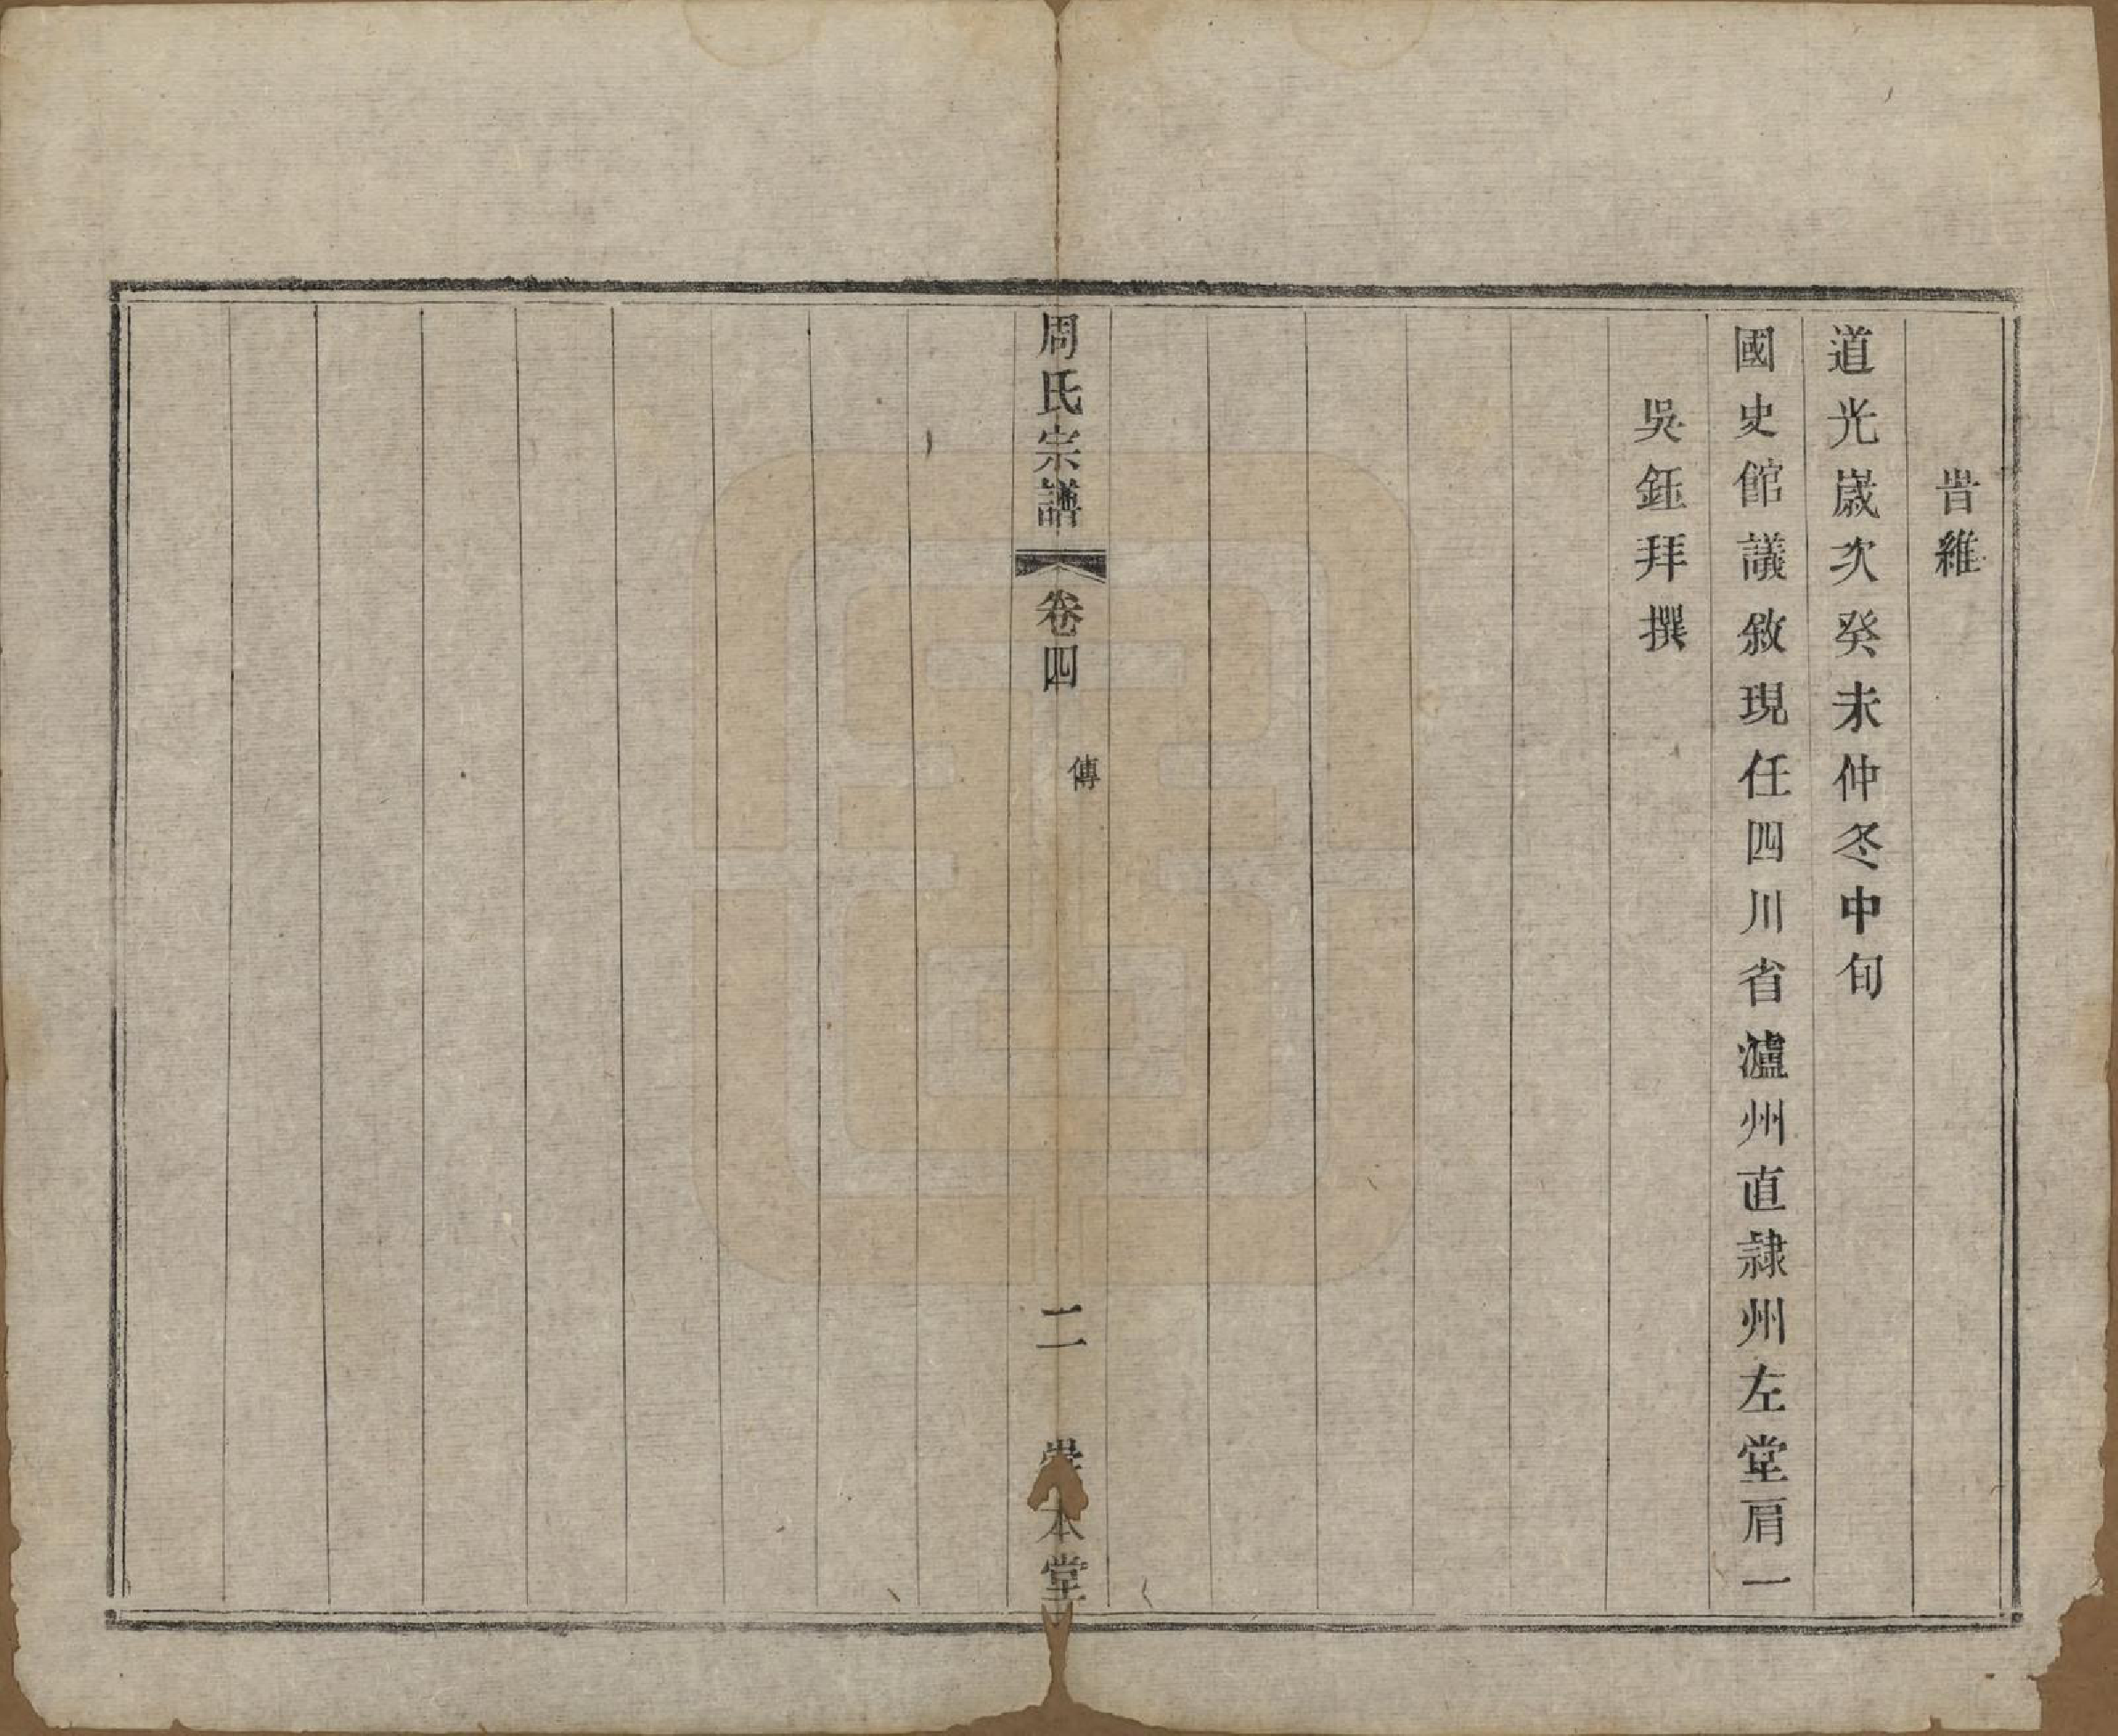 旹維
道光歲次癸未仲冬中旬
國史館議敘現任四川省瀘州直隸州左堂肩一
吳鈺拜撰
周氏宗譜 卷四 傳 二 本堂